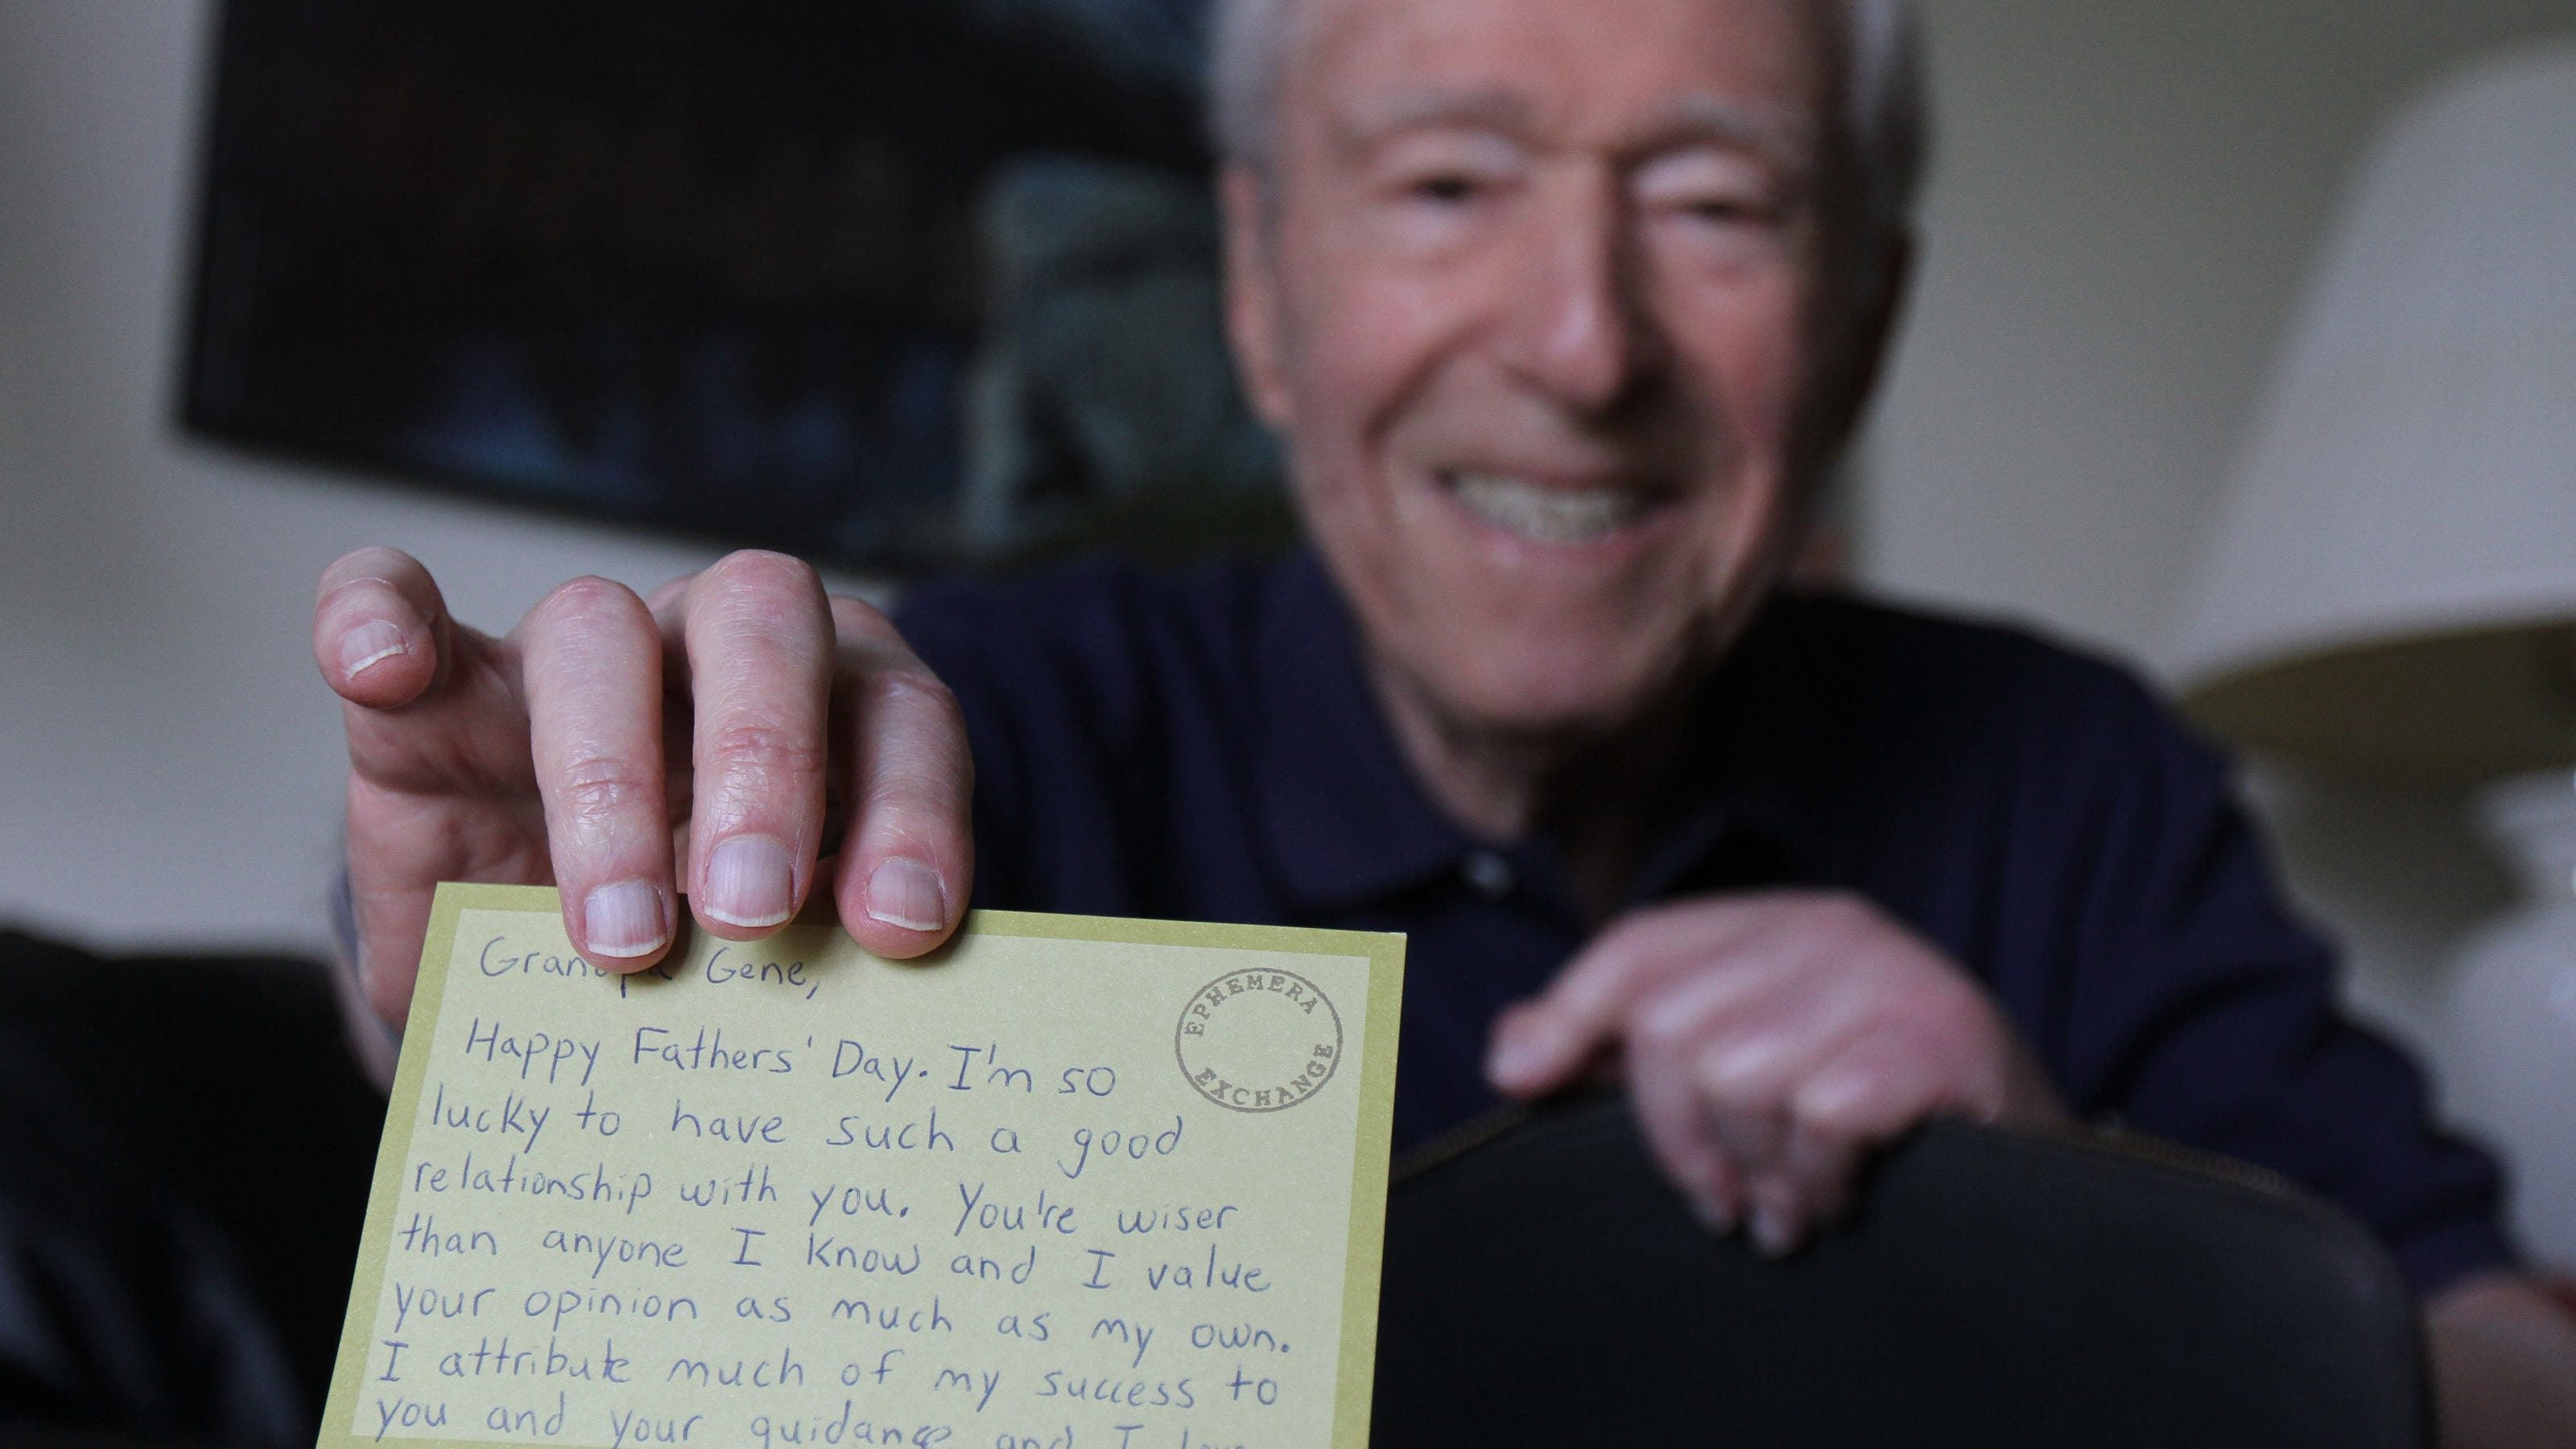 Grandpa Gene,
EPHEMERA
EXCHANGE
Happy Fathers' Day. I'm so
lucky to have such a good
relationship with you. You're wiser
than anyone I know and I value
your opinion as much as my own.
I attribute much of my success to
you and your guidance and I